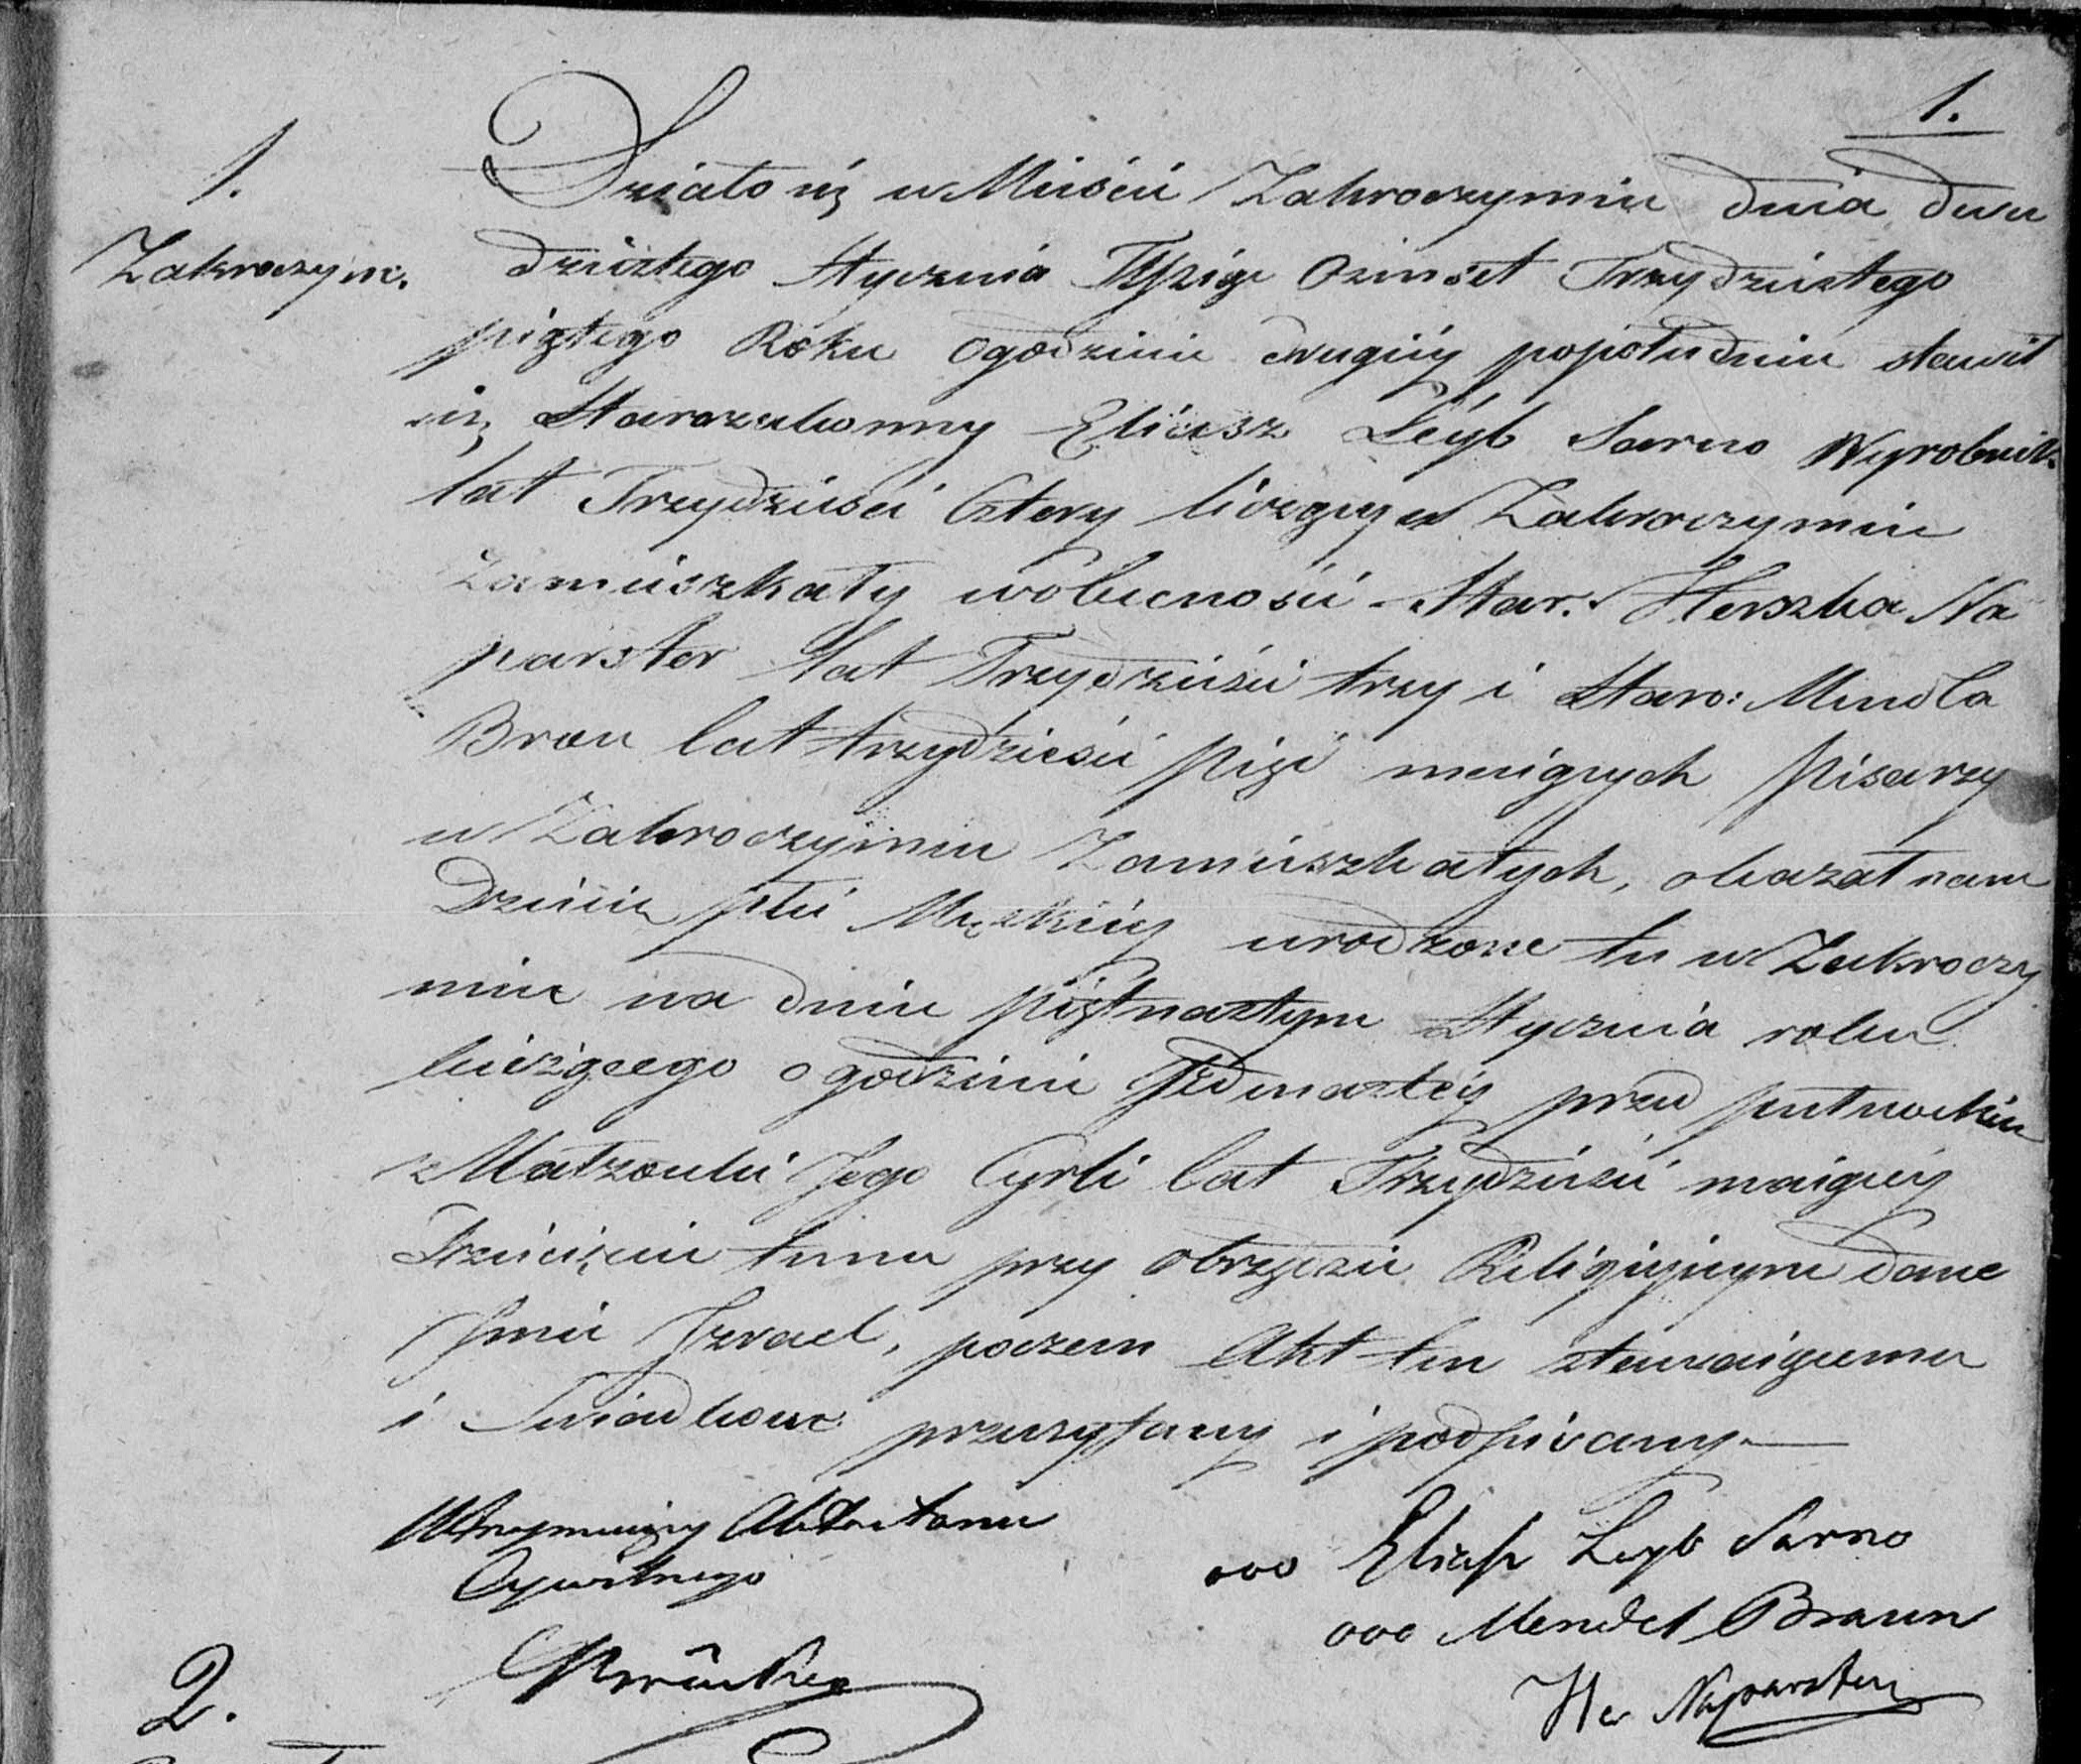 1.
1.
Zakroczym.
Działo się w Mieście Zakroczymiu dnia dwu
dziestego Stycznia Tysiąc Ośmset Trzydziestego
piątego Roku o godzinie drugiéy popołudniu stawił
się Starozakonny Eliasz Leyb Sarno Wyrobnik
lat Trzydzieści Cztery liczący w Zakroczymiu
Zamieszkały w obecności Star. Herszka Na
parster lat Trzydzieści trzy i Staro: Mendla
Bron lat trzydzieści pięć maiących pisarzy
w Zakroczymiu Zamieszkałych, okazał nam
Dziecie płci Męzkiéy urodzone tu w Zakroczy
miu na dniu piętnastym Stycznia roku
bieżącego o godzinie Jedenastéy przed
z Małżonki Jego Cyrli lat Trzydzieści maiącéy
Dziecięciu temu przy obrzędzie Religiynym dane
Imie Izrael, poczem Akt ten stawaiącemu
i Swiadkowe przeczytany i podpisany.
Utrzymuiący Akta Stanu
Cywilnego
ooo Eliasz Leyb Sarno
ooo Mendel Braun
Her Naparster
2.